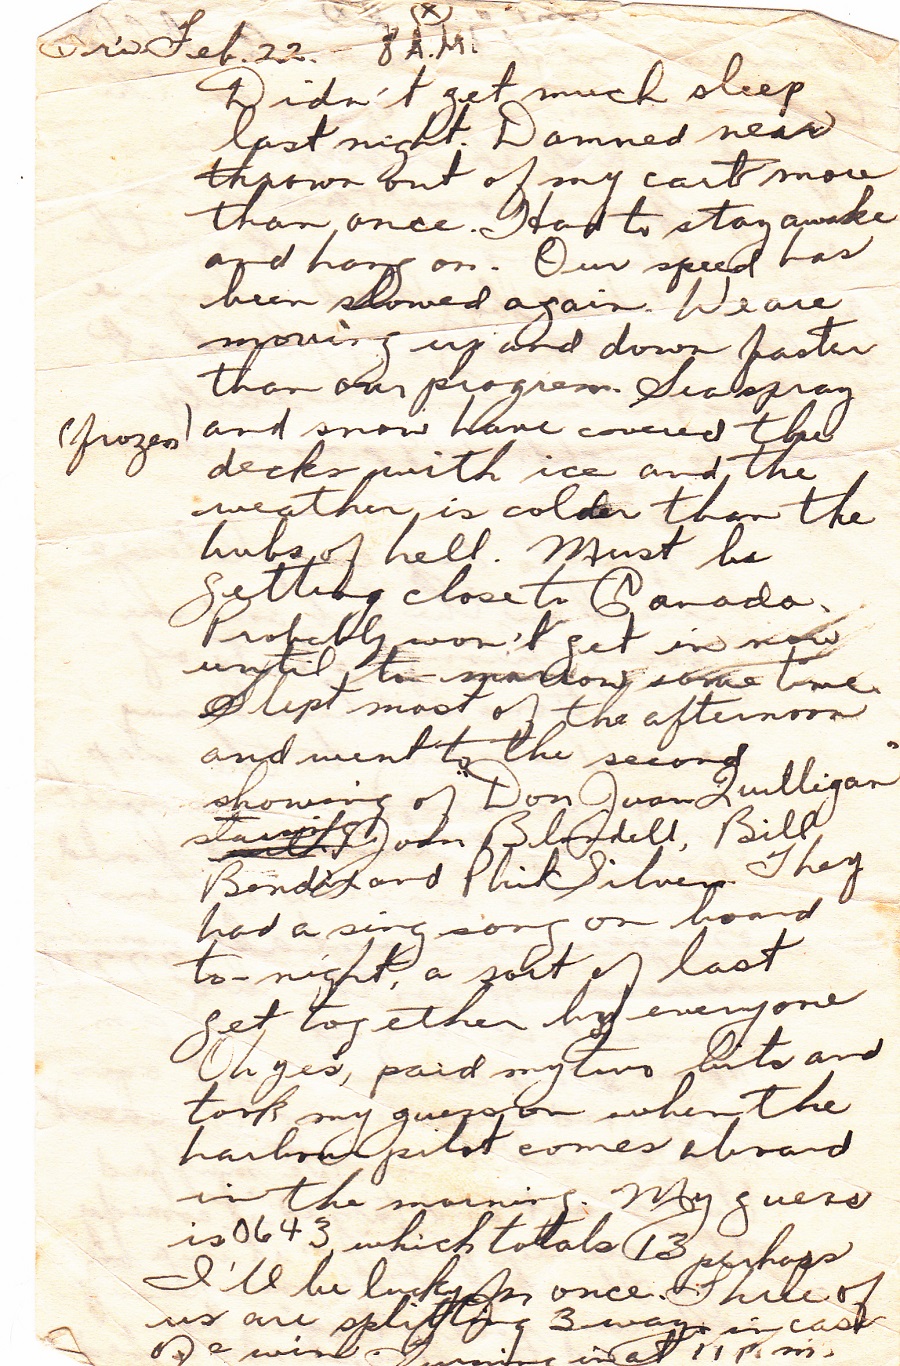 (X)
Fri Feb. 22. - 8 A.M.
Didn't get much sleep
last night. Damned near
thrown out of my cart more
than once. Had to stay awake
and hang on. Our speed has
been slowed again. We are
moving up and down faster
than our progress. Sea spray
(frozen) and snow have covered the
decks with ice and the
weather is colder than the
hubs of hell. Must be
getting close to Canada.
Probably won't get in now
until to-morrow some time.
Slept most of the afternoon
and went to the second
showing of "Don Juan Quilligan"
starring Joan Blondell, Bill
Bendix and Phil Silvers. They
had a sing song on board
to-night, a sort of last
get together by everyone
Oh yes, paid my two bits and
took my guess on when the
harbour pilot comes aboard
in the morning. My guess
is 0643 which totals 13 perhaps
I'll be lucky for once. Three of
us are splitting 3 ways in case
we win. Turning in at 11 p.m.